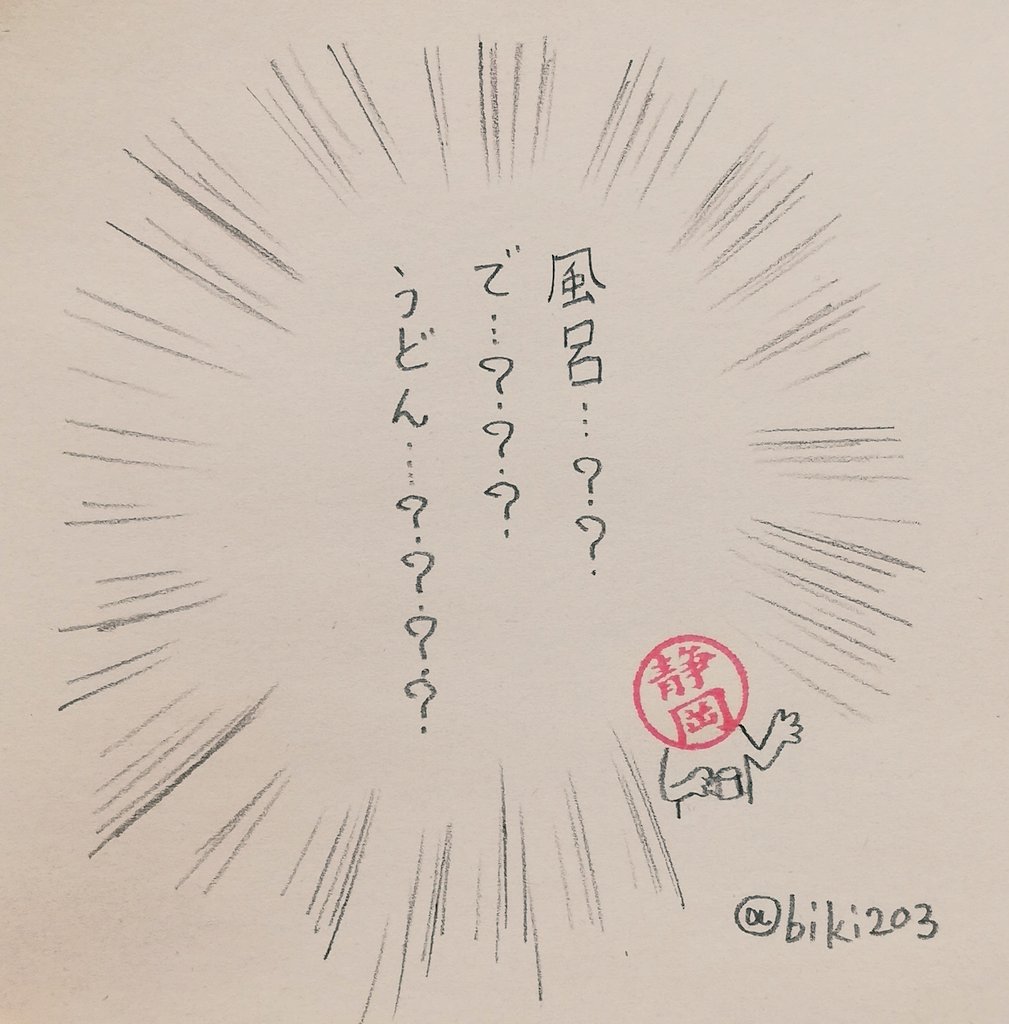 風呂…??
で…???
うどん…????
静岡
@biki203